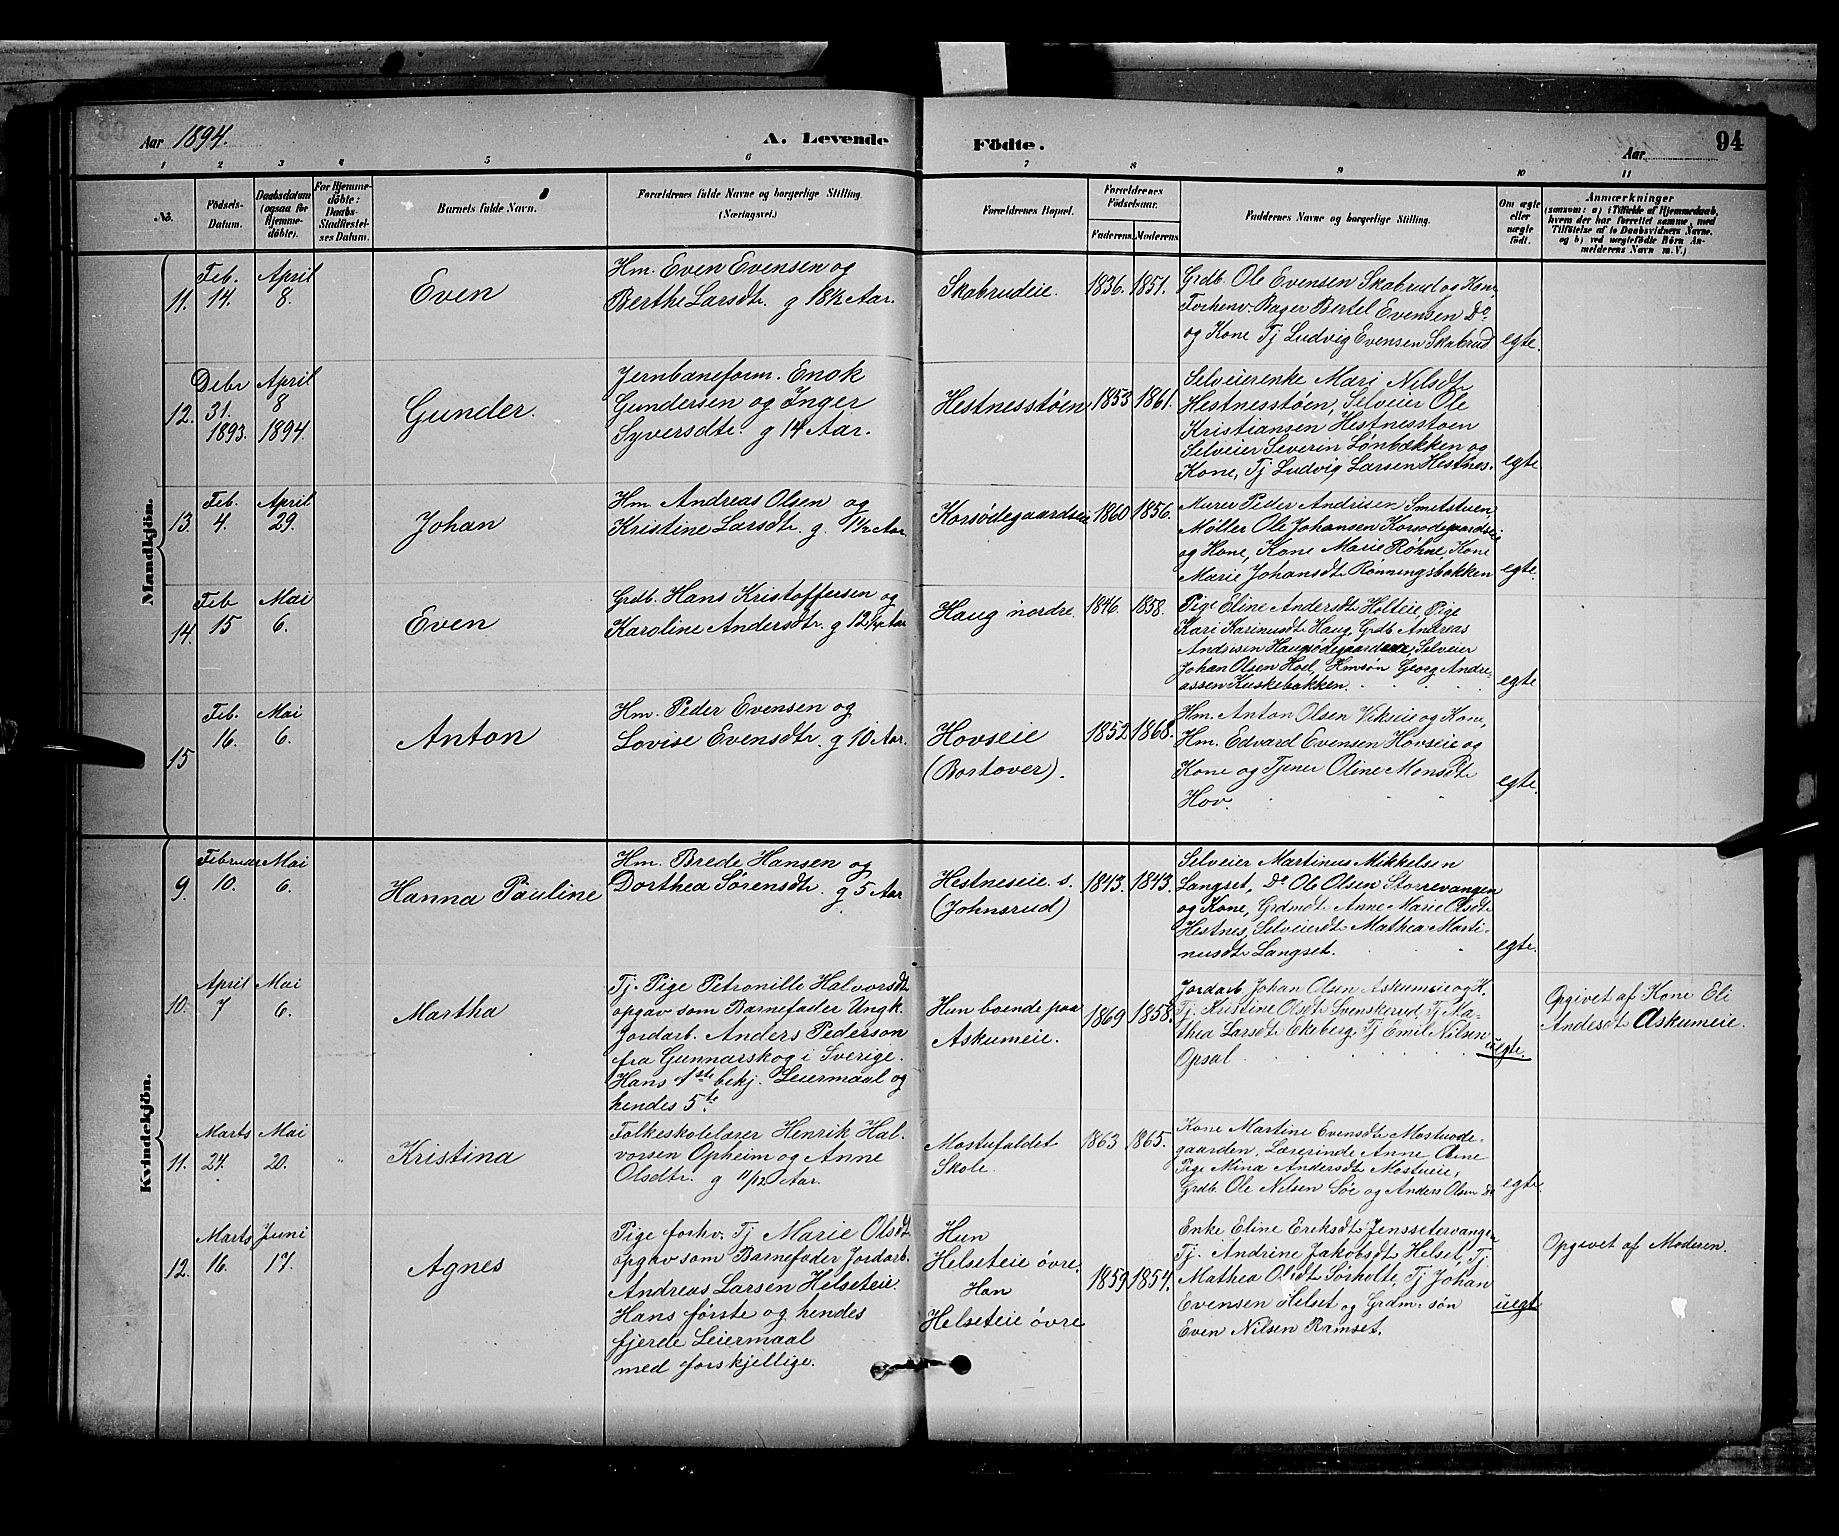 Aar 1894.
A. Levende Födte.
Aar
94
1 2 3 4 5 6 7 8 9 10 11
No.
Födsels-Datum.
Daabsdatum (ogsaa for Hjemme-döbte).
For Hjemme-döbte: Daabs-Stadfæstel-ses Datum.
Barnets fulde Navn.
Forældrenes fulde Navne og borgerlige Stilling. (Næringsvei.)
Forældrenes Bopæl.
Forældrenes Födselsaar.
Faderens. Moderens.
Faddernes Navne og borgerlige Stilling.
Om ægte eller uægte födt.
Anmærkninger
(saasom: a) i Tilfælde af Hjemmedaab, hvem der har forrettet samme, med Tilföielse af to Daabsvidners Navne, og b) ved uægtefödte Börn An-melderens Navn m. V.)
Mandkjön.
11. Feb. 14. April 8.
Even
Hm. Even Evensen og
Berthe Larsdtr. g 18½ Aar.
Skabrudeie.
1836. 1851.
Grdb. Ole Evensen Skabrud og Kone,
Forhenv. Bager Bertel Evensen Do
og Kone Tj Ludvig Evensen Skabrud
egte.
12. Debr 31. 1893. April 8 1894.
Gunder.
Jernbaneform. Enok
Gundersen og Inger
Syversdtr. g 14 Aar.
Hestnesstøen
1853 1861.
Selveierenke Mari Nilsdtr
Hestnesstøen, Selveier Ole
Kristiansen Hestnesstøen
Selveier Severin Lønbækken og
Kone, Tj Ludvig Larsen Hestnes.
egte.
13. Feb. 4. April 29.
Johan
Hm. Andreas Olsen og
Kristine Larsdtr. g. 1½ Aar.
Korsødegaardseie
1860 1856.
Murer Peder Andersen Smitstuen,
Møller Ole Johansen Korsødegaardseie
og Kone, Kone Marie Røhne, Kone
Marie Johansdtr Rønningsbakken
egte.
14. Feb 15 Mai 6.
Even
Grdb. Hans Kristoffersen og
Karoline Andersdtr. g 12¼ Aar
Haug nordre.
1846. 1858.
Pige Eline Andersdtr Holteie Pige
Kari Karinusdtr Haug, Grdb Andreas
Andersen Haugsødegaarden, Selveier
Johan Olsen Hoel, Hmsøn Georg Andre-
assen Kuskebakken.
egte
15 Feb. 16. Mai 6.
Anton
Hm. Peder Evensen og
Lovise Evensdtr. g 10 Aar.
Hovseie
(Bortover).
1852 1868.
Hm. Anton Olsen Vikseie og Kone,
Hm. Edvard Evensen Hovseie og
Kone og Tjener Oline Monsdtr
Hov.
egte.
Kvindekjön.
9. Februar 10. Mai 6.
Hanna Pauline
Hm. Brede Hansen og
Dorthea Sørensdtr. g 5 Aar
Hestneseie. s.
(Johnsrud)
1843. 1843.
Selveier Martinus Mikkelsen
Langset, Do Ole Olsen Storrevangen
og Kone, Grdmdtr Anne Marie Olsdtr
Hestnes, Selveierdtr Mathea Marti-
nusdtr Langset.
egte.
10. April 7 Mai 6.
Martha
Tj. Pige Petronille Halvorsdtr
opgav som Barnefader Ungk.
Jordarb. Anders Pederson
fra Gunnarskog i Sverige.
Hans 1ste bekj. Leiermaal og
hendes 5te.
Hun boende paa
Askumeie.
1869 1858.
Jordarb. Johan Olsen Askumeie og K.
Tj. Kristine Olsdtr Svenskerud, Tj Ma-
thea Larsdtr Ekeberg. Tj Emil Nilsen
Opsal
uegte.
Opgivet af Kone Eli
Andersdtr Askumeie.
11. Marts 24. Mai 20.
Kristina
Folkeskolelærer Henrik Hal-
vorsen Opheim og Anne
Olsdtr. g 11/12 Aar.
Mostufaldet
Skole.
1863 1865.
Kone Martine Evensdtr Mostuøde-
gaarden, Lærerinde Anne Arne
Pige Mina Andersdtr Mostueie,
Grdb. Ole Nilsen Søe og Anders Olsen Do
egte.
12. Marts 16. Juni 17.
Agnes
Pige forhv. Tj Marie Olsdtr
opgav som Barnefader Jordarb.
Andreas Larsen Helseteie.
Hans første og hendes
fjerde Leiermaal
med forskjellige.
Hun
Helseteie øvre.
Han
Helseteie øvre
1859 1854.
Enke Eline Eriksdtr Jenssetervangen
Tj. Andrine Jakobsdtr Helset, Tj.
Mathea Olsdtr Sørholte, Tj Johan
Evensen Helset og Grdm. søn
Even Nilsen Ramset.
uegt
Opgivet af Moderen.